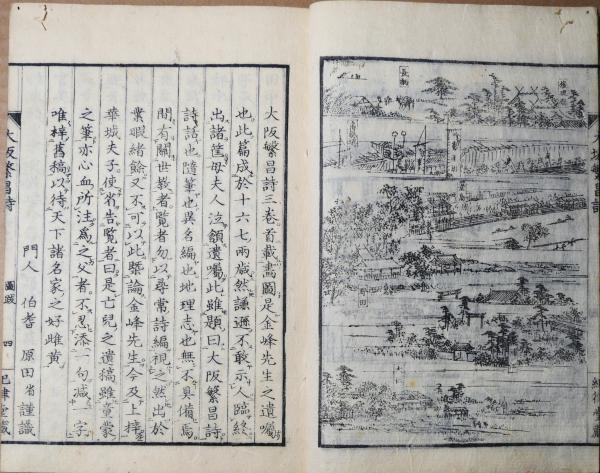 長柄
大阪繁昌詩三卷首載畫圖是金峰先生之遺囑
也此篇成於十六七兩歲然謙遜不敢示人臨終
出諸筐毋夫人泣額遺囑此雖題曰大阪繁昌詩
詩話也隨筆也異名編也地理志也無不具備焉
間有關世教者覽者勿以尋常詩編視之然出於
業暇緒餘又不可以此槩論金峰先生今及上梓
華城夫子使省告覽者曰是亡兒之遺稿雖童蒙
之筆亦心血所注爲之父者不忍添一句減一字
唯梓舊稿以待天下諸名家之好雌黄
門人 伯耆 原田省謹識
大阪繁昌詩
圖跋
四